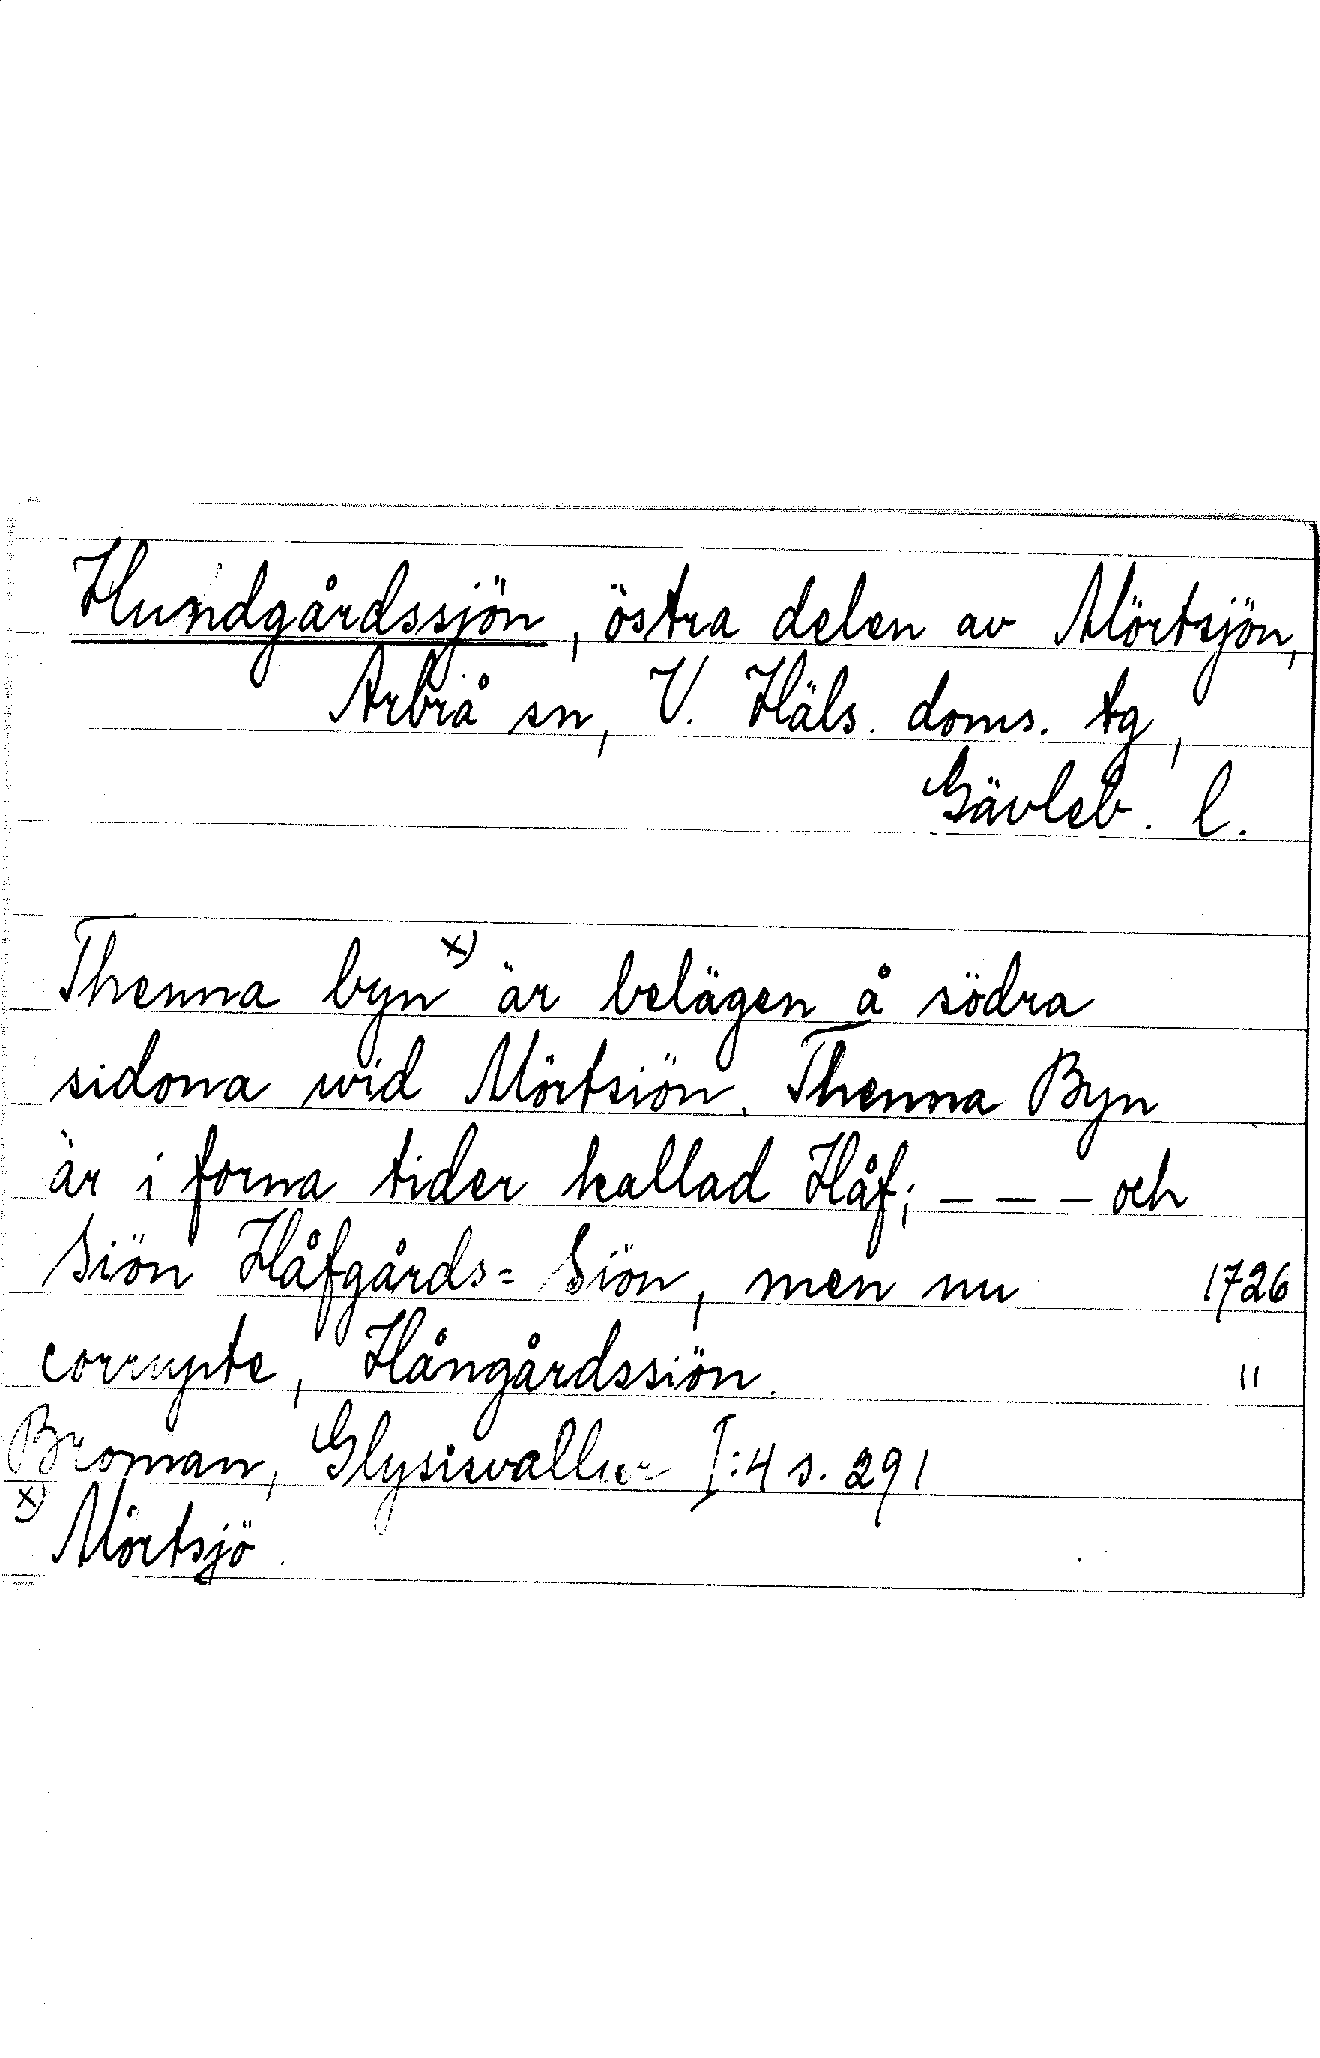 Hundgårdssjön, östra delen av Mörtsjön,
Arbrå sn, V. Häls. doms. tg,
Gävleb. l.
Thenna byn x) är belägen å södra
sidona wid Mörtsiön. Thenna Byn
är i forna tider kallad Håf; – – – och
Siön Håfgårds= Siön, men nu 1726
corrupte, Hångårdssiön. "
Broman, Glysisvallur I:4 s. 291
x) Mörtsjö.